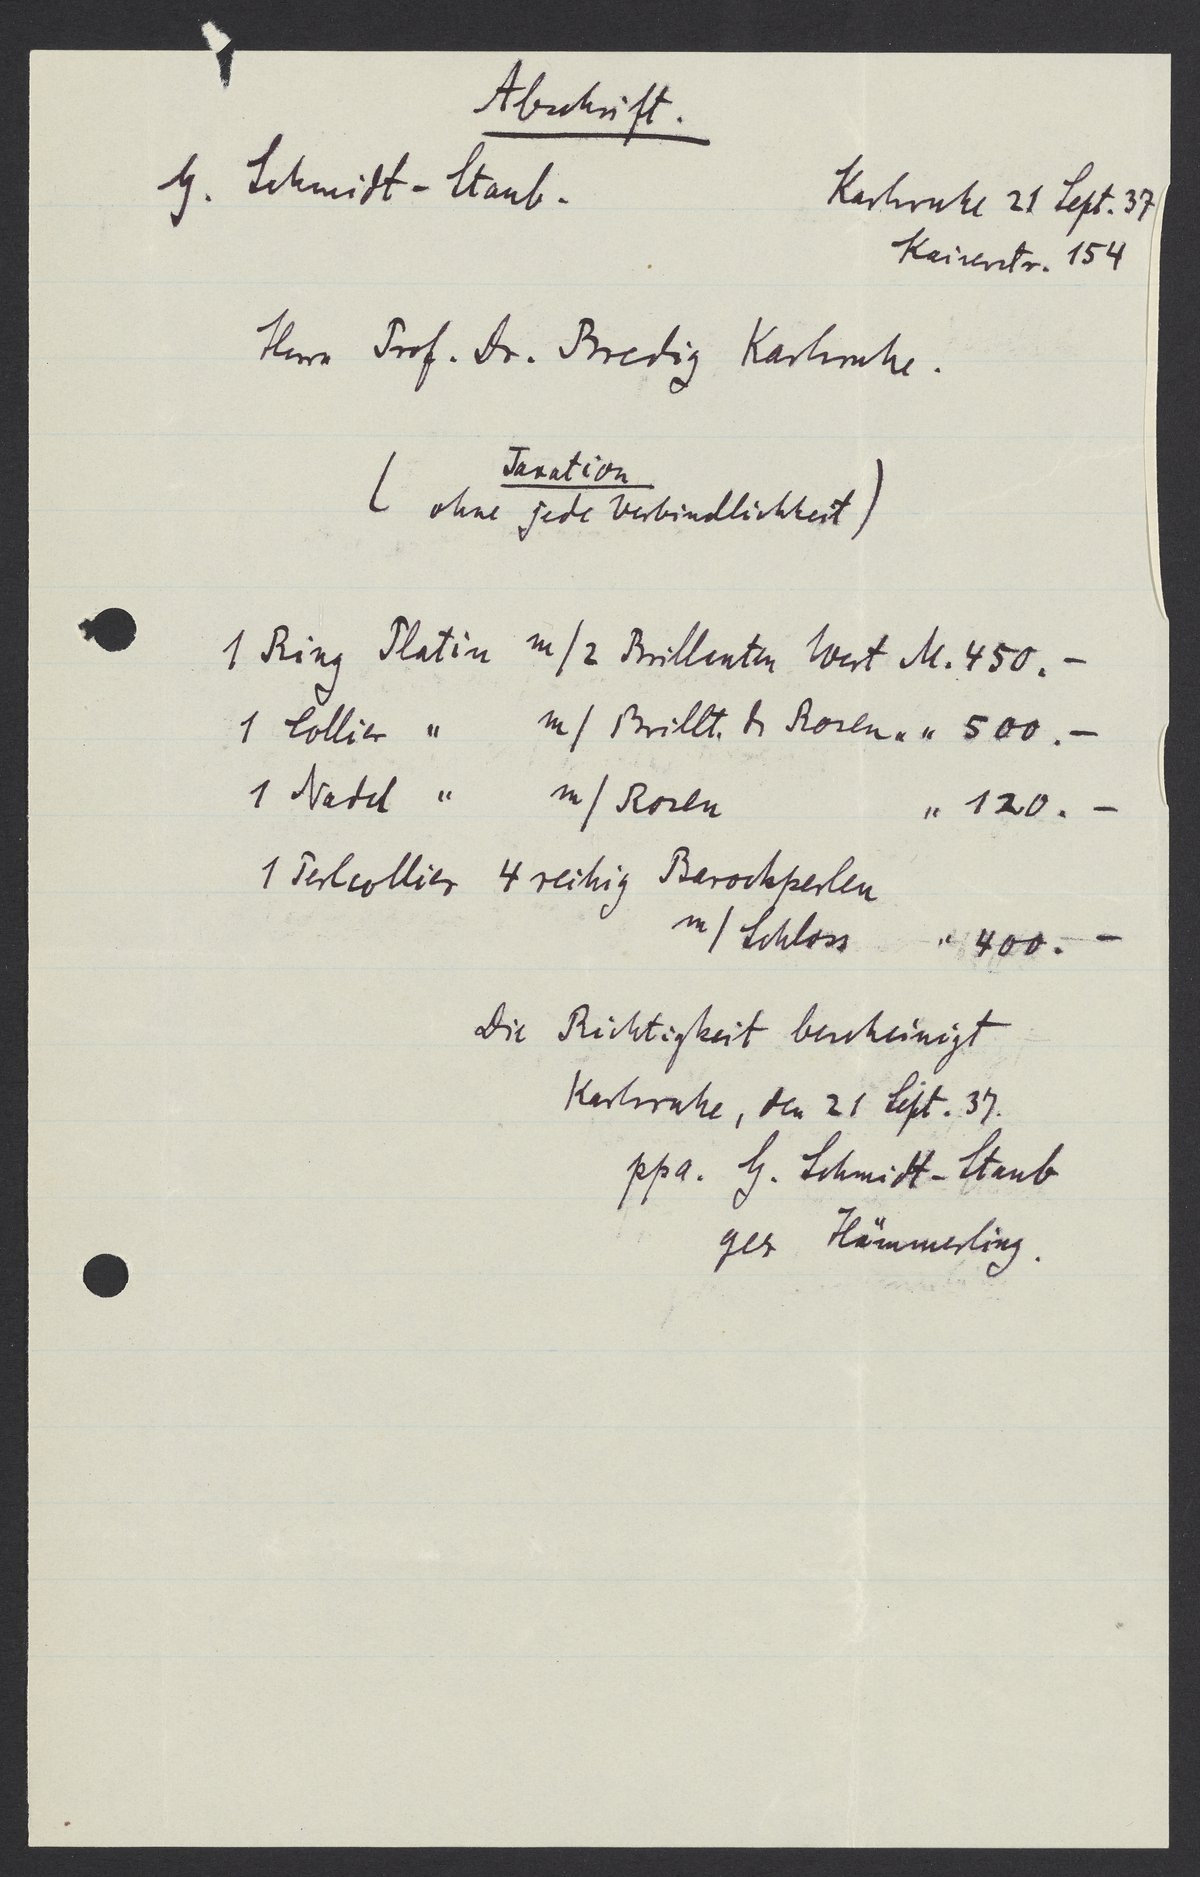 Abschrift.
G. Schmidt-Staub.
Karlsruhe 21 Sept. 37
Kaiserstr. 154
Herrn Prof. Dr. Bredig Karlsruhe.
( Taxation
ohne jede Verbindlichkeit )
1 Ring Platin m/2 Brillanten Wert M. 450.-
1 Collier " m/ Brillt. & Rosen " " 500.-
1 Nadel " m/ Rosen " 120.-
1 Perlcollier 4 reihig Barockperlen
m/ Schloss " 400.-
Die Richtigkeit bescheinigt
Karlsruhe, den 21 Sept. 37.
ppa. G. Schmidt-Staub
gez Hämmerling.